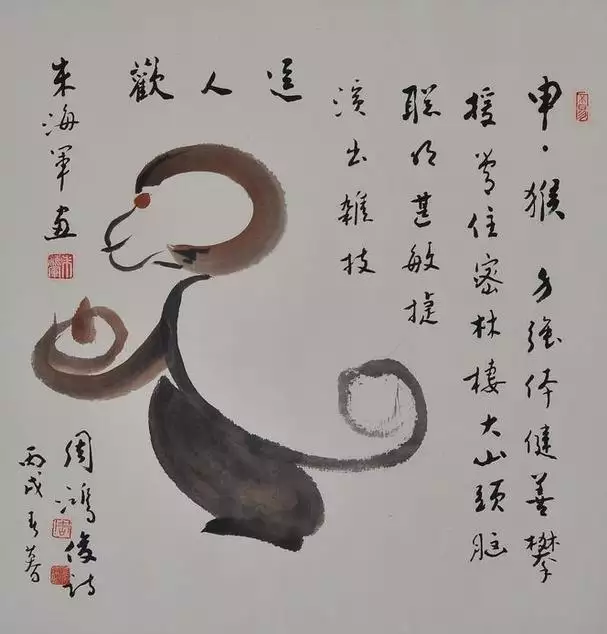 申·猴 力强体健善攀
援常住密林棲大山頭脑
聪明甚敏捷
演出雜技
逗
人
歡
朱海军画
周鸿俊诗
丙戌春暮